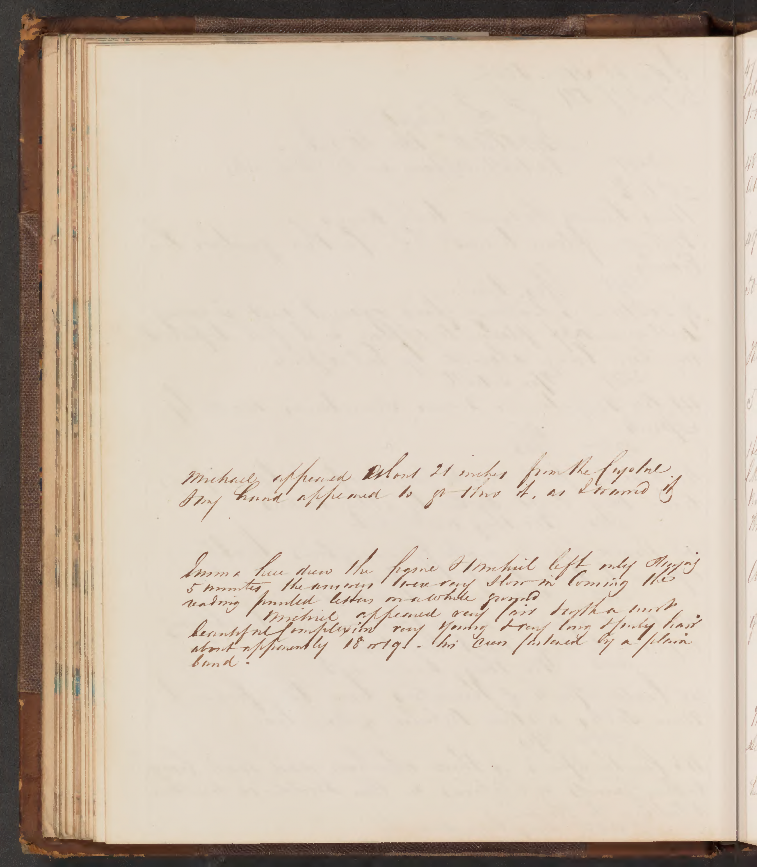 Michael, appeared about 21 inches from the Crystal
& my hand appeared to go thro it, as I waved it
Emma here drew the figure & Michiel left only staying
5 minutes, the answers were very slow in Coming the
reading printed letters on a white ground
Michiel appeared very fair with a most
beautiful Complexion very Young & very long & curly hair
about apparently 18 or 19. his crown fastened by a plain
band.